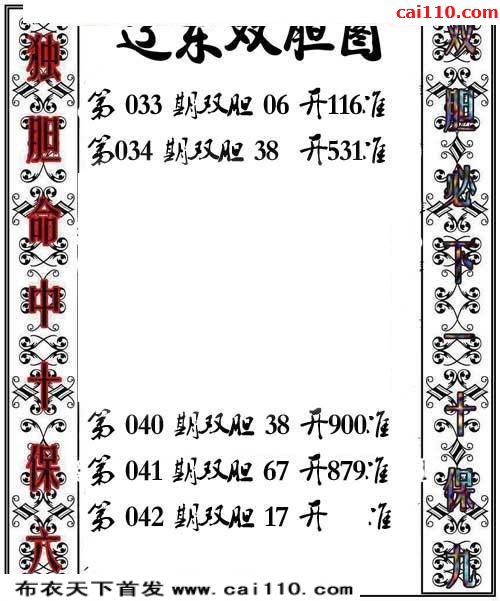 cai110.com
辽东双胆图
独胆命中十保六
第 033 期双胆 06 开116准
第034 期双胆 38 开531准
第 040 期双胆 38 开900准
第 041 期双胆 67 开879准
第 042 期双胆 17 开 准
双胆必下一十保九
布衣天下首发 www.cai110.com